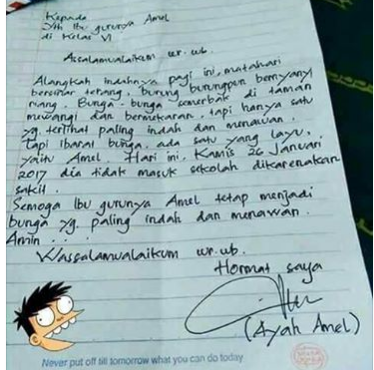 Kepada
Yth Ibu gurunya Amel
di kelas VI
Assalamualaikum wr. wb.
Alangkah indahnya pagi ini, matahari
bersinar terang, burung burungpun bernyanyi
riang. Bunga-bunga semerbak di taman
mewangi dan bermekaran, tapi hanya satu
yg. terlihat paling indah dan menawan.
Tapi ibarat bunga, ada satu yang layu,
yaitu Amel. Hari ini, Kamis 26 Januari
2017 dia tidak masuk sekolah dikarenakan
sakit.
Semoga Ibu gurunya Amel tetap menjadi
bunga yg. paling indah dan menawan.
Amin . . .
Wassalamualaikum wr. wb.
Hormat saya
(Ayah Amel)
Never put off till tomorrow what you can do today